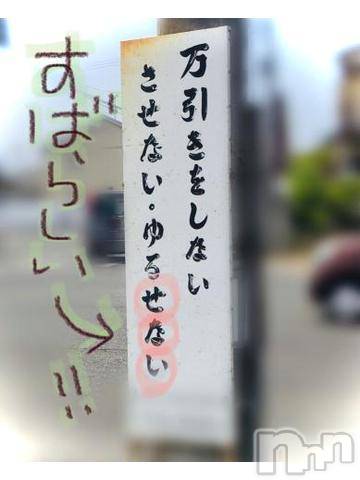 万引きをしない
させない。ゆるせない
すばらしい!!!
nmn